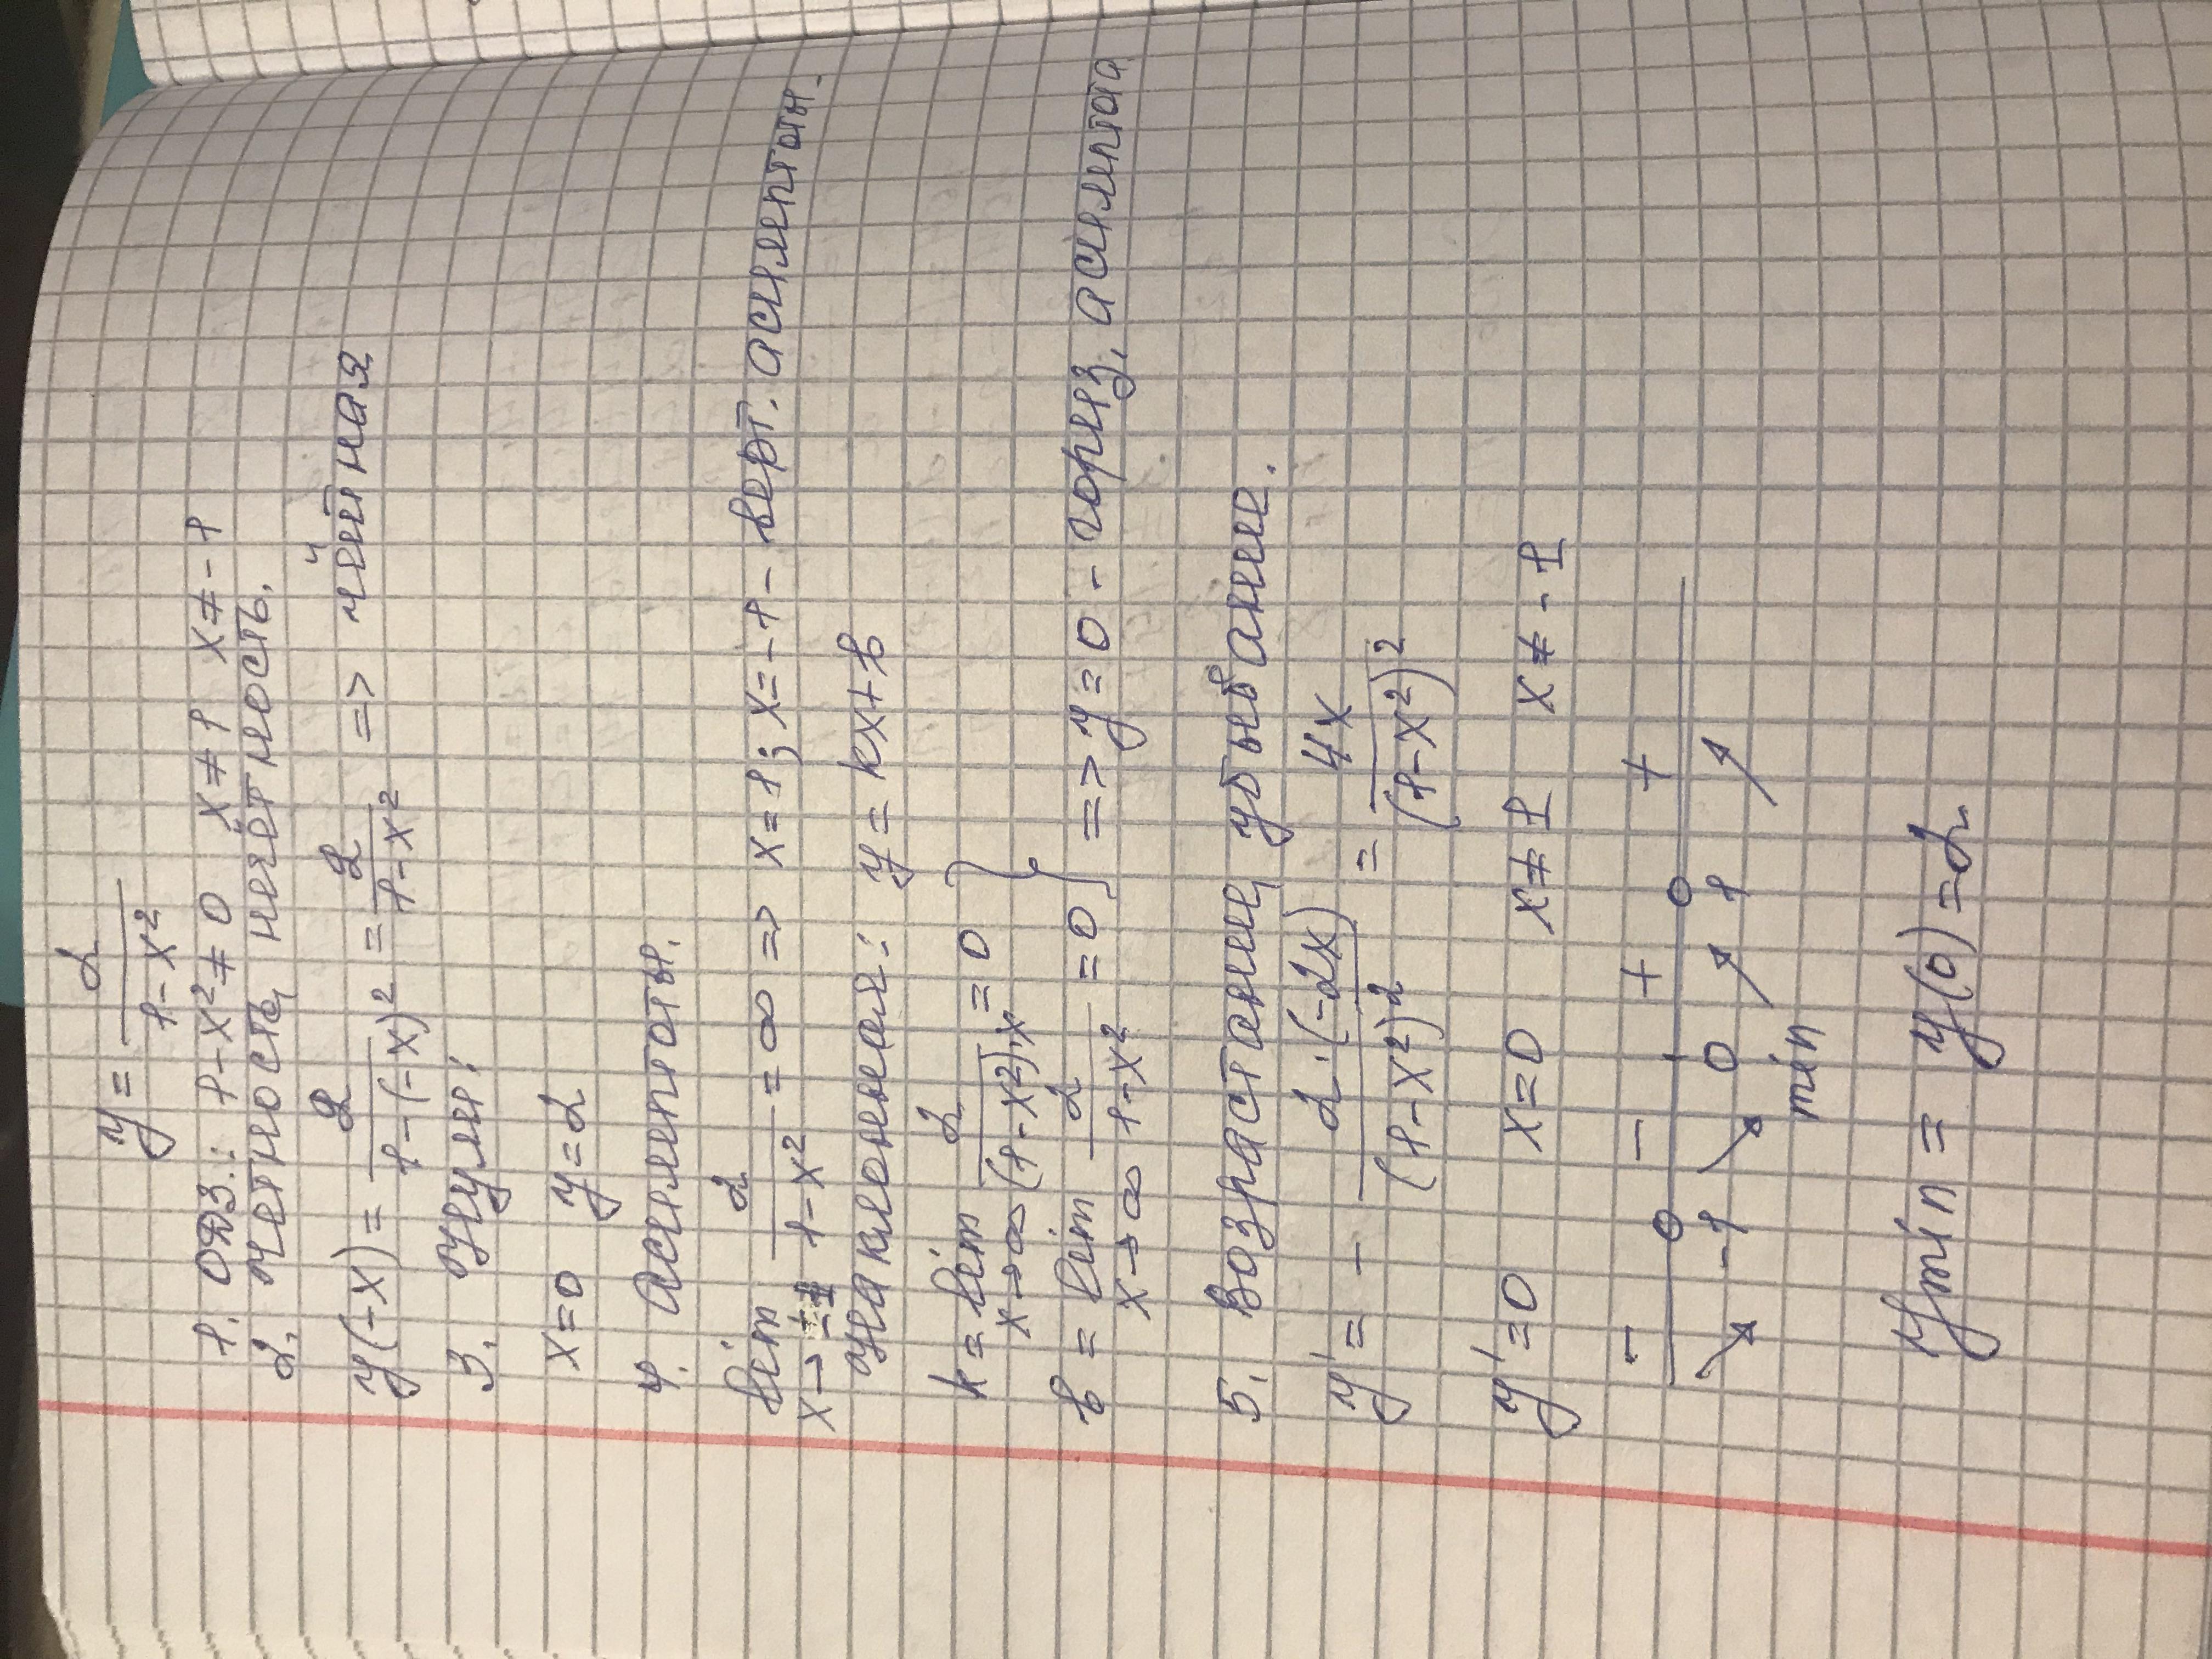 y = 2/(1-x²)
1. ОДЗ: 1-x² ≠ 0 x ≠ 1 x ≠ -1
2. четность, нечётность.
y(-x) = 2/(1-(-x)²) = 2/(1-x²) => чётная
3. Нули:
x=0 y=2
4. Асимптоты.
lim x→±1 2/(1-x²) = ∞ => x=1; x=-1 - верт. асимптоты.
Наклонная: y = kx+b
k = lim x→∞ 2/((1-x²)·x) = 0
b = lim x→∞ 2/(1-x²) = 0 } => y=0 - гориз. асимптота
5. Возрастание, убывание.
y' = - 2·(-2x)/(1-x²)² = 4x/(1-x²)²
y'=0 x=0 x≠1 x≠-1
- - + +
-1 0 1
min
ymin = y(0)=2